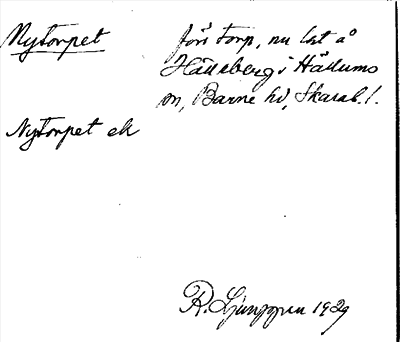 Nytorpet
förr torp, nu lht å
Hälleberg i Hällums
sn, Barne hd, Skarab. l.
Nytorpet ek
R. Ljunggren 1929